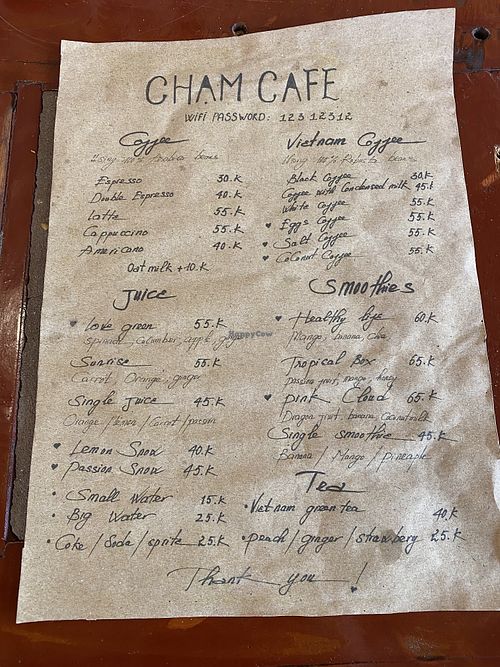 CHAM CAFE
WIFI PASSWORD: 12312312
Coffee
Using 100% Arabica beans
Espresso 30.K
Double Espresso 40.K
Latte 55.K
Cappuccino 55.K
Americano 40.K
Oat milk +10.K
Juice
Love green 55.K
spinach, cucumber, apple,
Sunrise 55.K
Carrot, Orange, ginger
Single Juice 45.K
Orange / lemon / Carrot / passion
Lemon Snow 40.K
Passion Snow 45.K
Small Water 15.K
Big Water 25.K
Coke / Soda / sprite 25.K
Vietnam Coffee
Using 100% Robusta beans
Black Coffee 30.K
Coffee with Condensed milk 45.K
White Coffee 55.K
Eggs Coffee 55.K
Salt Coffee 55.K
Coconut Coffee 55.K
Smoothies
Healthy bye 60.K
Mango, banana, chia
Tropical Box 65.K
passion fruit, mango, honey
Pink Cloud 65.K
Dragon fruit, banana, Coconut milk
Single smoothie 45.K
Banana / Mango / pineapple
Tea
Vietnam green tea 40.K
peach / ginger / strawbery 25.K
Thank you !
HappyCow